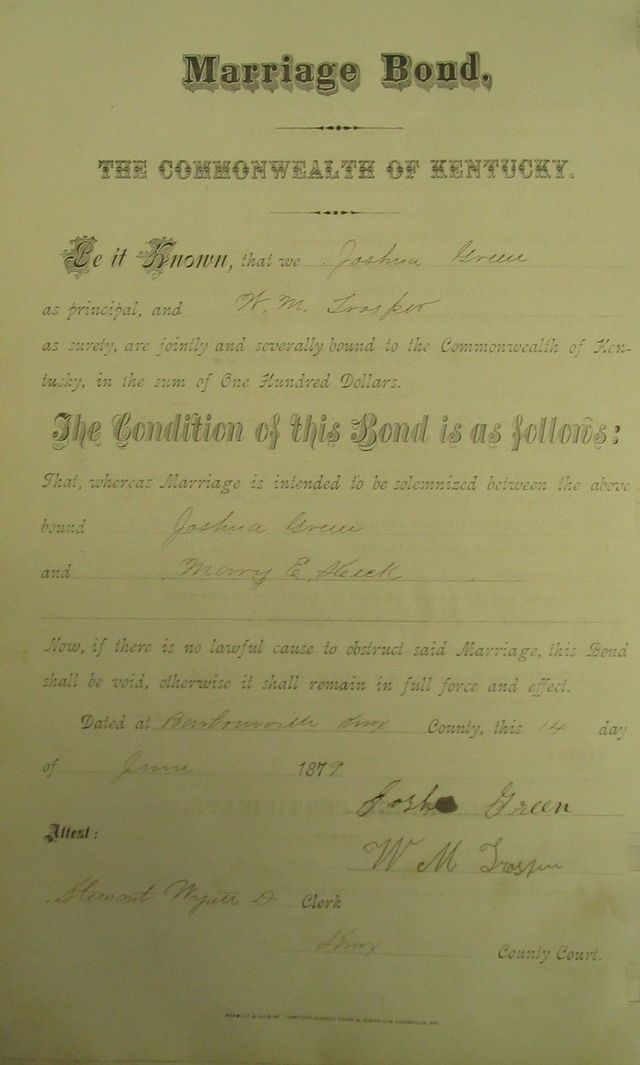 Marriage Bond.
THE COMMONWEALTH OF KENTUCKY.
Be it Known, that we Joshua Green
as principal, and W. M. Trosper
as surety, are jointly and severally bound to the Commonwealth of Ken-
tucky, in the sum of One Hundred Dollars.
The Condition of this Bond is as follows:
That, whereas Marriage is intended to be solemnized between the above
bound Joshua Green
and Mary E. Steck
Now, if there is no lawful cause to obstruct said Marriage, this Bond
shall be void, otherwise it shall remain in full force and effect.
Dated at Barbourville Knox County, this 14 day
of June 1879.
Josh Green
Attest:
W M Trosper
Stewart Wyatt D Clerk
Knox County Court.